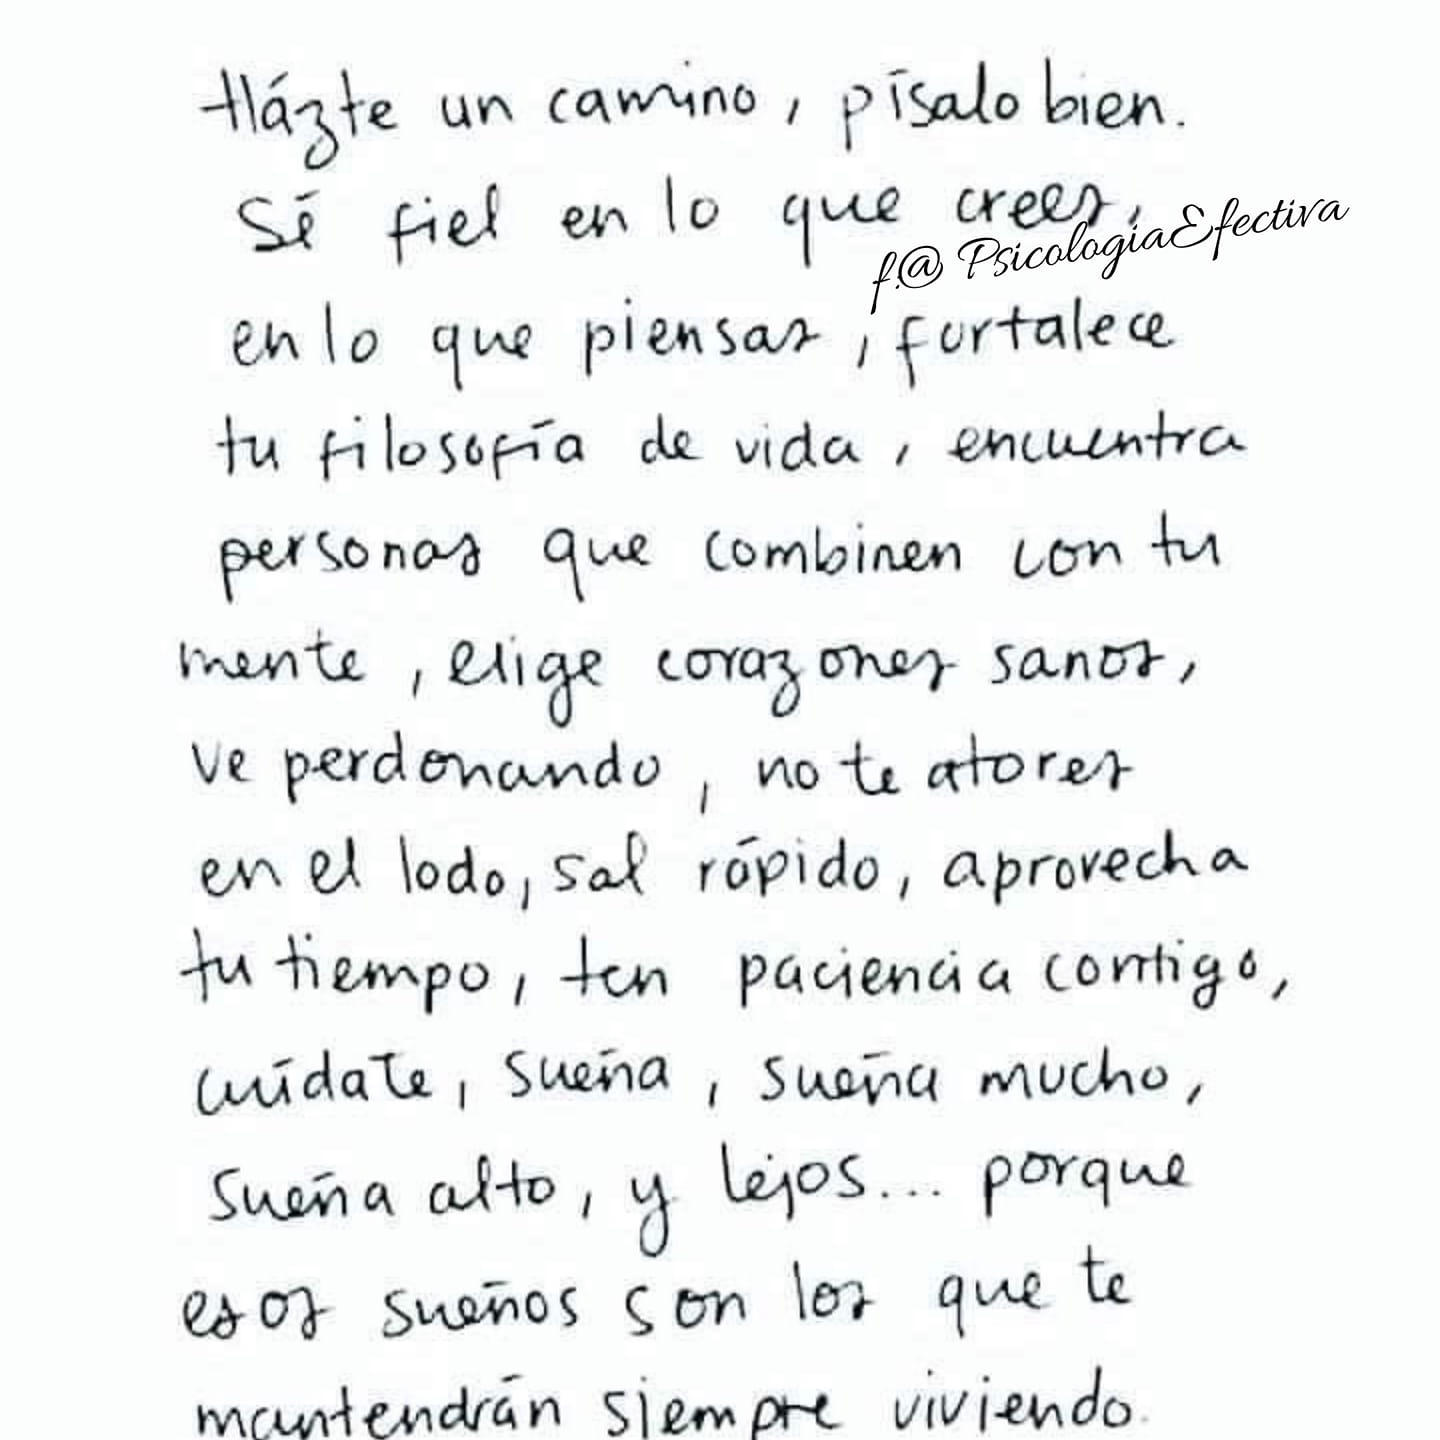 Házte un camino, písalo bien.
Sé fiel en lo que crees,
f.@ PsicologiaEfectiva
en lo que piensas, fortalece
tu filosofía de vida, encuentra
personas que combinen con tu
mente, elige corazones sanos,
ve perdonando, no te atores
en el lodo, sal rápido, aprovecha
tu tiempo, ten paciencia contigo,
cuídate, sueña, sueña mucho,
sueña alto, y lejos... porque
esos sueños son los que te
mantendrán siempre viviendo.